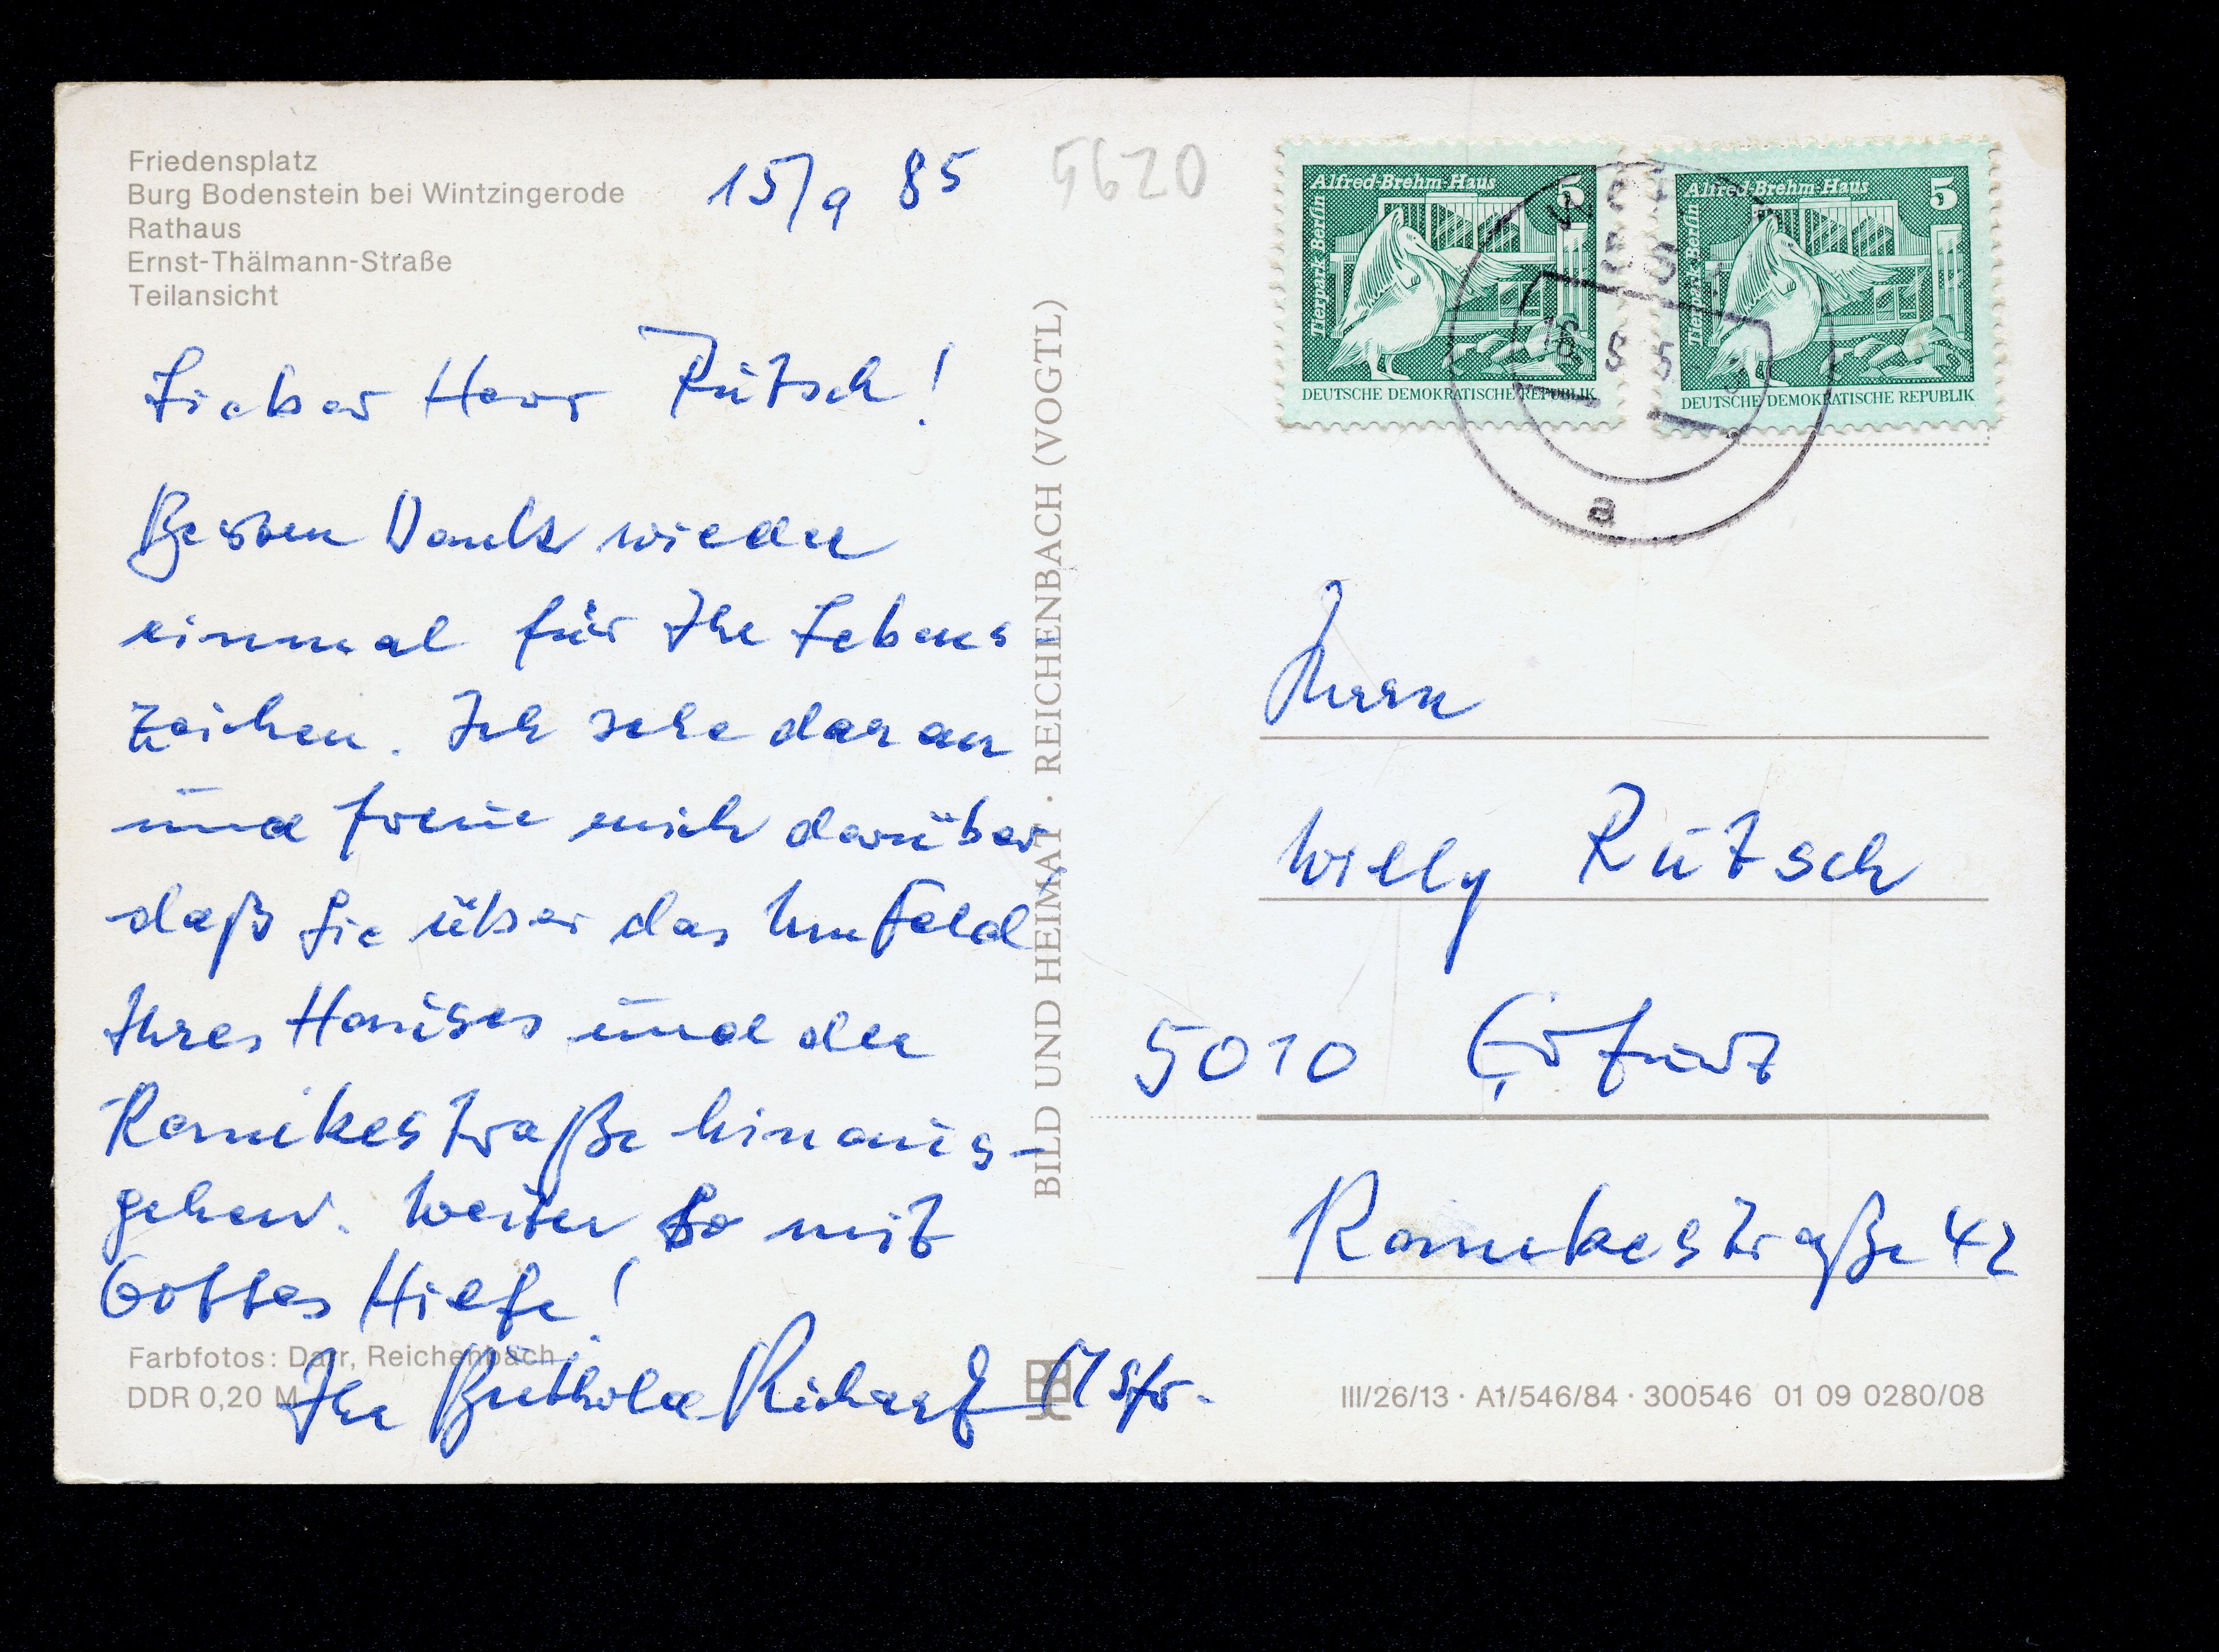 Friedensplatz
Burg Bodenstein bei Wintzingerode
Rathaus
Ernst-Thälmann-Straße
Teilansicht
15/9 85
5620
Lieber Herr Rützsch!
Besten Dank wieder
einmal für Ihr Lebens
zeichen. Ich sehe daran
und freue mich darüber
daß Sie über das Umfeld
Ihres Hauses und der
Ramikestraße hinaus-
gehen. Weiter so mit
Gottes Hilfe!
Ihr
Farbfotos: Darr, Reichenbach
DDR 0,20 M
BILD UND HEIMAT · REICHENBACH (VOGTL)
Alfred-Brehm-Haus 5
Tierpark Berlin
DEUTSCHE DEMOKRATISCHE REPUBLIK
Alfred-Brehm-Haus 5
Tierpark Berlin
DEUTSCHE DEMOKRATISCHE REPUBLIK
a
Herrn
Willy Rützsch
5010 Erfurt
Ramikestraße 42
III/26/13 · A1/546/84 · 300546 01 09 0280/08